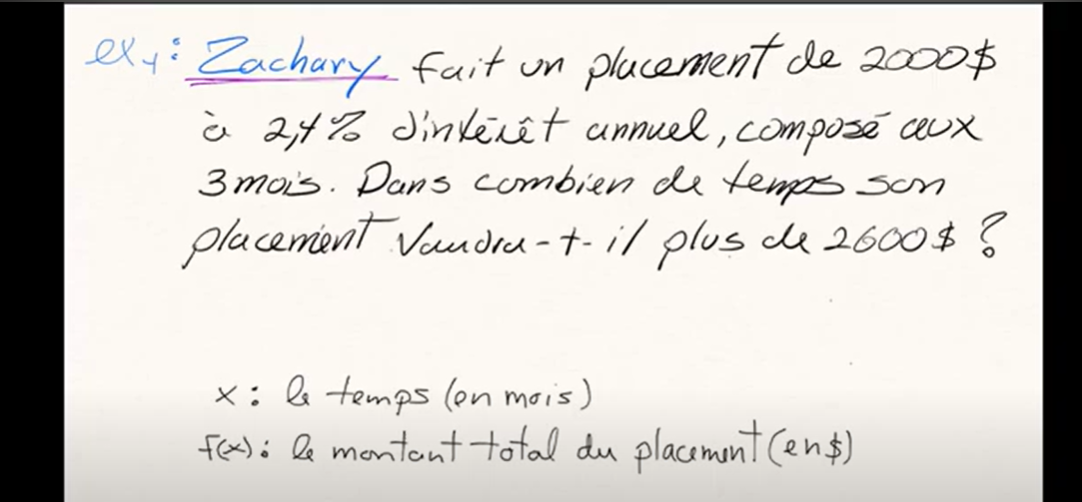 ex4: Zachary fait un placement de 2000$
à 2,4% d'intérêt annuel, composé aux
3 mois. Dans combien de temps son
placement vaudra-t-il plus de 2600$ ?
x : le temps (en mois)
f(x) : le montant total du placement (en $)